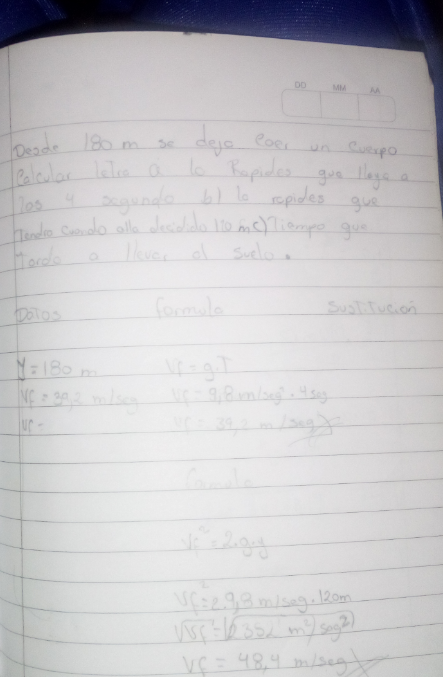 DD MM AA
Desde 180 m se deja Caer un Cuerpo
Calcular letra a la Rapides que lleva a
los 4 segundo b) la rapides que
Tendra Cuando alla decidido 110 m c) Tiempo que
Tarda a llevar al suelo.
Datos formula Sustitución
Y = 180 m Vf = g.T
Vf = 39,2 m/seg Vf = 9,8 m/seg² · 4 seg
Vf = Vf = 39,2 m/seg
formula
Vf² = 2.g.y
Vf² = 2 9,8 m/seg · 120m
√Vf² = √2352 m²/seg²
Vf = 48,4 m/seg